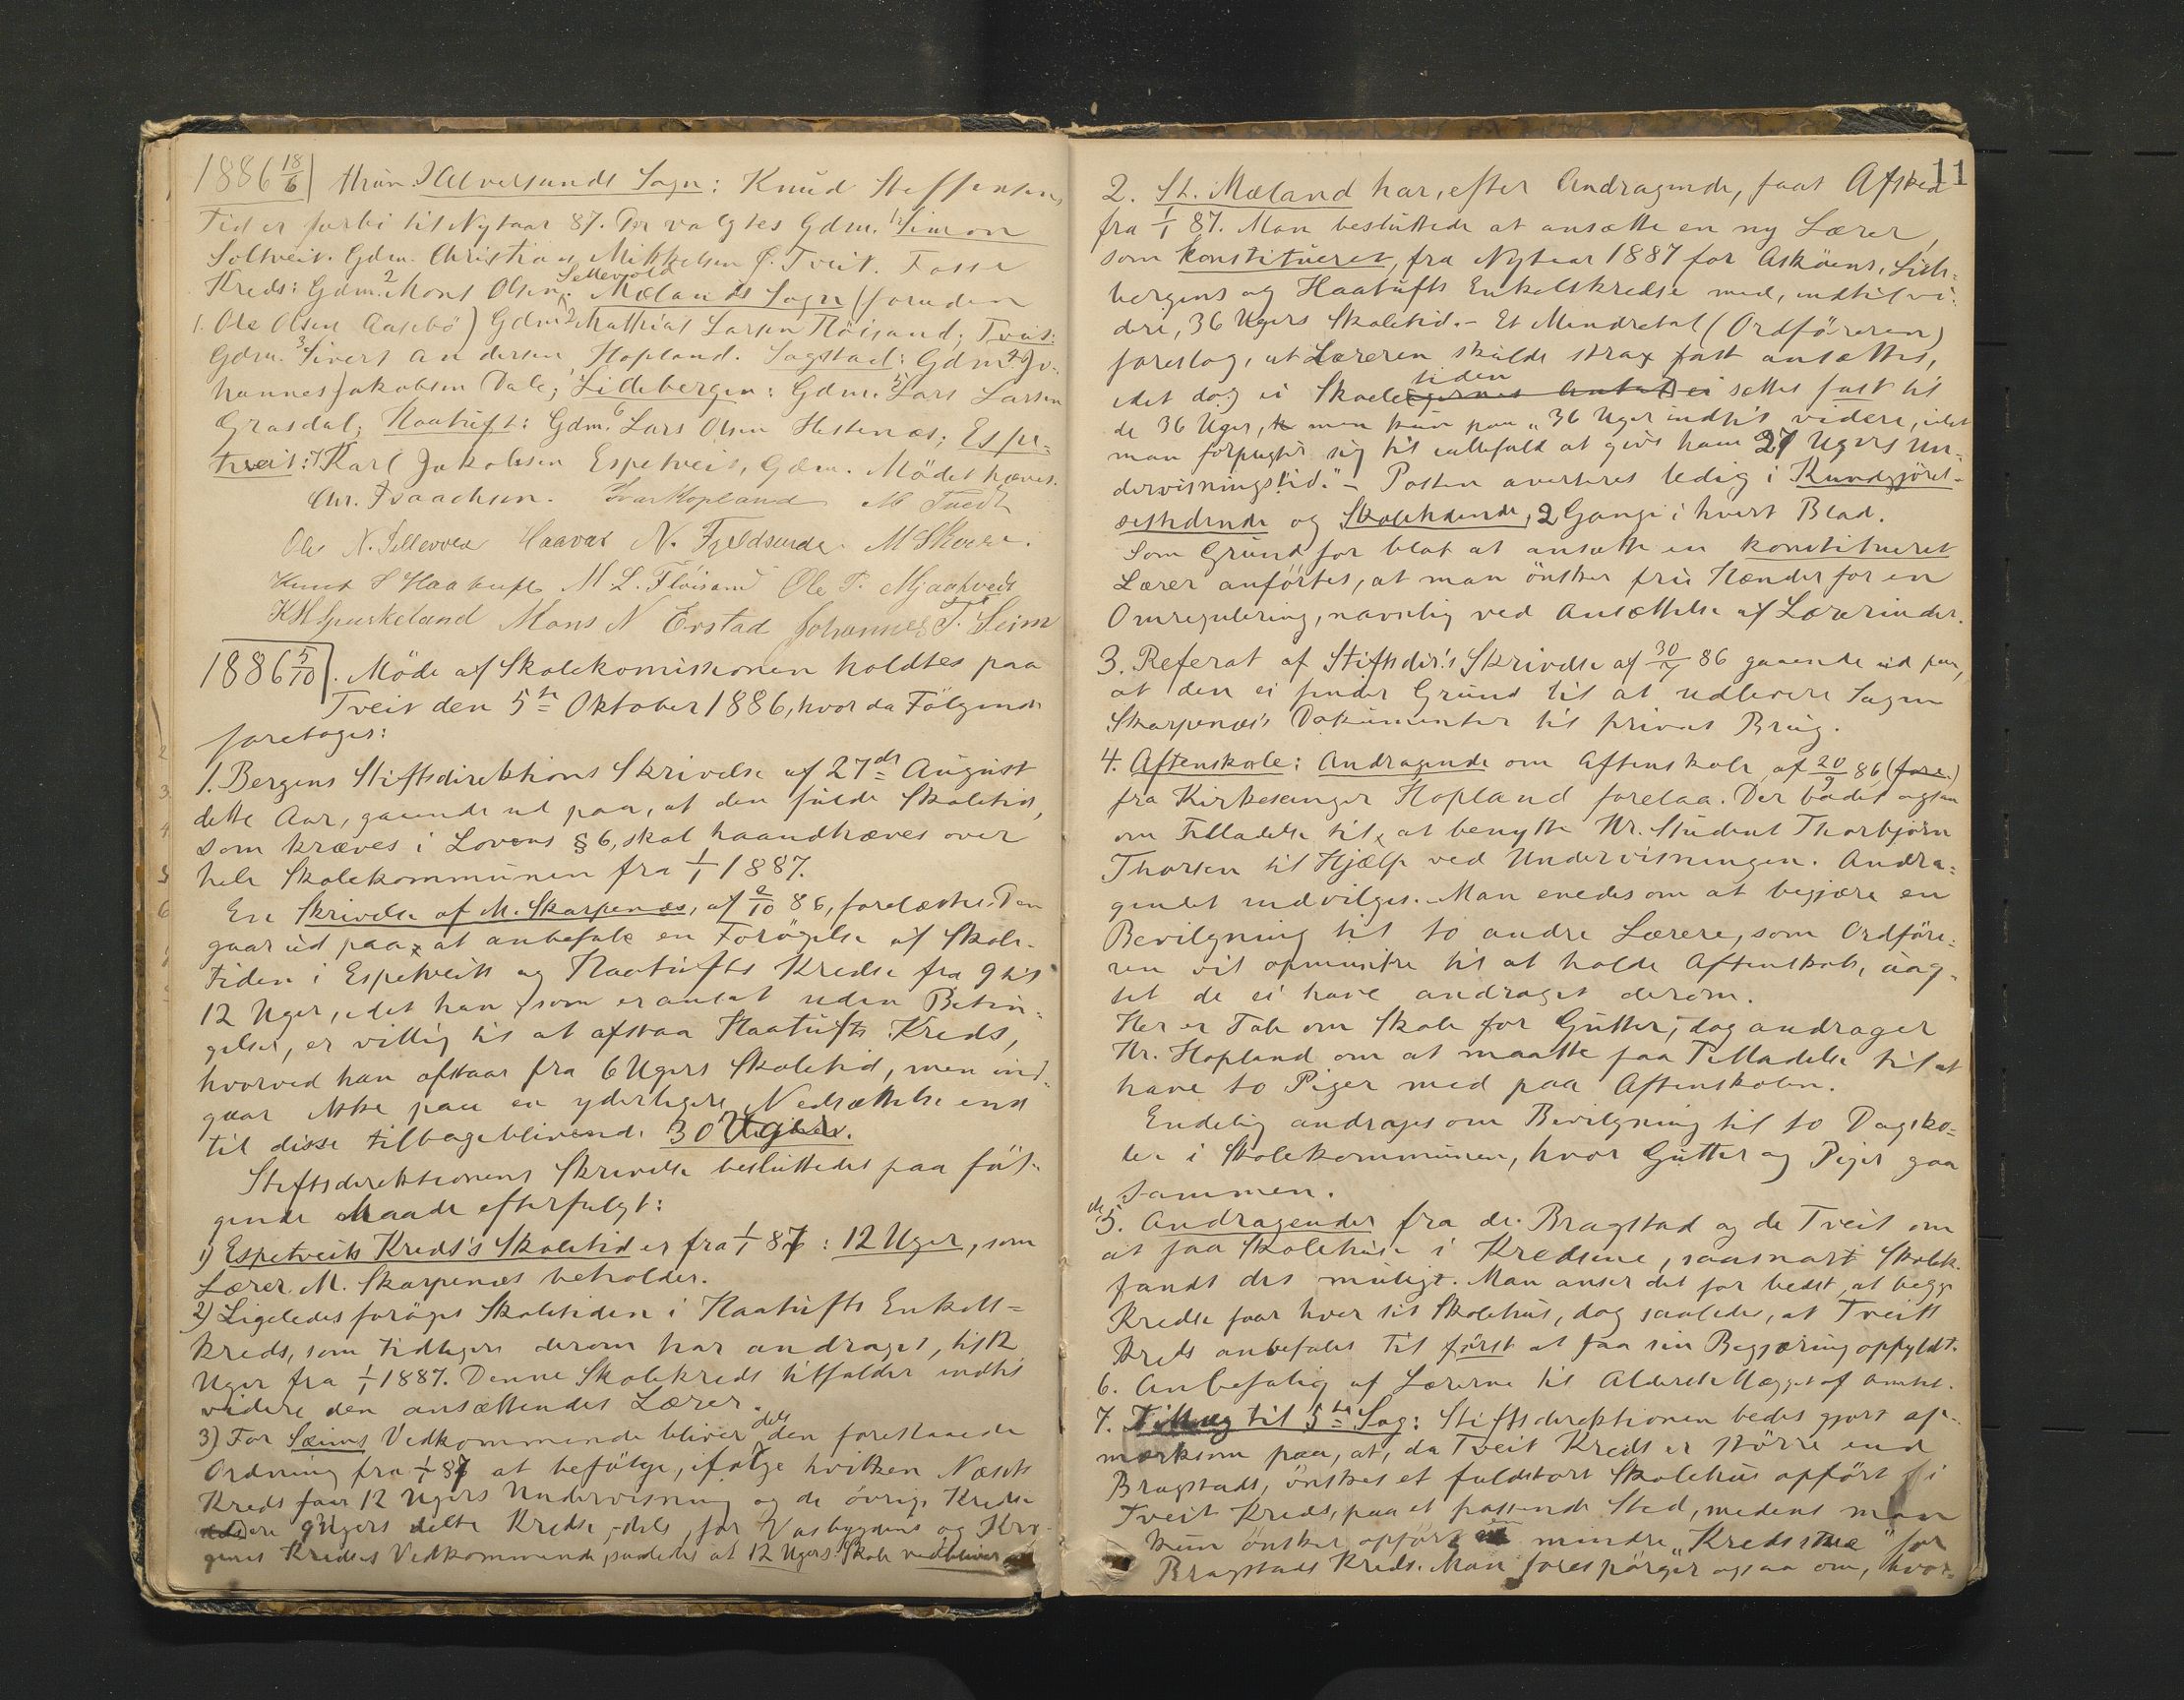 1886 18/6 Alversunds Sogn: Knud Steffensens
Tid er forbi til Nytaar 87. Der valgtes Gdm. 1. Simon
Soltveit. Gdm. Christian Mikkelsen Ø. Tveit. Fosse
Kreds: Gdm. 2 Mons Olsen Sellevold. Mælands Sogn (foruden
1. Ole Olsen Aasebö) Gdm 2 Mathias Larsen Flöisand; Tveit:
Gdm. 3 Sivert Andersen Hopland. Sagstad: Gdm. 4 Jo-
hannes Jakobsen Dale; Lillebergen: Gdm. 5 Lars Larsen
Grasdal; Haatuft: Gdm. 6 Lars Olsen Hestenæs; Espe-
tveit: 7 Karl Jakobsen Espetveit, Gdm. Mödet hævet.
Chr. Isaachsen. Ivar Hopland M Tvedt
Ole N. Sellevold Haavar N. Fjeldsende M Skare.
Knut S Haatuft M L. Flöisand Ole P. Mjaatvedt
KH Spurkeland Mons N Erstad Johannes T. Seim
1886 5/10. Möde af Skolekomissionen holdtes paa
Tveit den 5te Oktober 1886, hvor da Fölgende
foretoges:
1. Bergens Stiftsdirektions Skrivelse af 27de August
dette Aar, gaaende ud paa, at den fulde Skoletid,
som kræves i Lovens § 6, skal haandhæves over
hele Skolekommunen fra 1/1 1887.
En Skrivelse af M. Skarpenæs, af 2/10 86, forelæstes. Den
gaar ud paa, at anbefale en Forögelse af Skole-
tiden i Espetveits og Haatufts Kredse fra 9 til
12 Uger, idet han, som er ansat uden Betin-
gelser, er villig til at afstaa Haatufts Kreds,
hvorved han afstaar fra 6 Ugers Skoletid, men ind-
gaar ikke paa en yderligere Nedsættelse end
til disse tilbageblivende 30 Uger.
Stiftsdirektionens Skrivelse besluttedes paa föl-
gende Maade efterfulgt:
1) Espetveits Kreds's Skoletid er fra 1/1 87: 12 Uger, som
Lærer M. Skarpenæs beholder.
2) Ligeledes foröges Skoletiden i Haatufts Enkelt-
kreds, som tidligere derom har andraget, til 12
Uger fra 1/1 1887. Denne Skolekreds tilfalder indtil
videre den ansættendes Lærer.
3) For Seims Vedkommende bliver dels den foreslaaede
Ordning fra 1/1 87 at befölge, ifölge hvilken Næsets
Kreds faar 12 Ugers Undervisning og de övrige Kredse
9 Ugers delte Kredse, dels, for Vasbygdens og
Kredses Vedkommende, saaledes at 12 Ugers Skole vedbliver
11
2. St. Mæland har, efter Andragende, faat Afsked
fra 1/1 87. Man besluttede at ansætte en ny Lærer,
som konstitueret, fra Nytaar 1887 for Asköens, Lille-
bergens og Haatufts Enkeltkredse med, indtil vi-
dere, 36 Ugers Skoletid. - Et Mindretal (Ordföreren)
foreslog, at Læreren skulde strax fast ansættes,
idet dog ei Skoletiden settes fast til
de 36 Uger, men kun paa „36 Uger indtil videre, idet
man forpligter sig til ialfald at give ham 27 Ugers Un-
dervisningstid." - Posten averteres ledig i Kundgjörel-
sestidende og Skoletidende, 2 Gange i hvert Blad.
Som Grund for blot at ansætte en konstitueret
Lærer anförtes, at man önsker frie Hænder for en
Omregulering, navnlig ved Ansættelse af Lærerinder.
3. Referat af Stiftsdir.'s Skrivelse af 30/7 86 gaaende ud paa,
at den ei finder Grund til at udlevere Sagen
Skarpenæs's Dokumenter til privat Brug.
4. Aftenskole: Andragende om Aftenskole af 20/9 86 (fore.)
fra Kirkesanger Hopland forelaa. Der bades ogsaa
om Tilladelse til, at benytte Hr. Student Thorbjörn
Thorsen til Hjælp ved Undervisningen. Andra-
gendet indvilges. Man enedes om at begjære en
Bevilgning til to andre Lærere, som Ordföre-
ren vil opmuntre til at holde Aftenskole, uag-
tet de ei have andraget derom.
Her er Tale om Skole for Gutter; dog andrager
Hr. Hopland om at maatte faa Tilladelse til at
have to Piger med paa Aftenskolen.
Endelig andrages om Bevilgning til to Dagsko-
ler i Skolekommunen, hvor Gutter og Piger gaa
sammen.
5. Andragender fra de Bragstad og de Tveit om
at faa Skolehuse i Kredsene, saasnart Skolek.
fandt det muligt. Man anser det for bedst, at begge
Kredse faar hver sit Skolehus, dog saaledes, at Tveits
Kreds anbefales til först at faa sin Begjæring opfyldt.
6. Anbefaling af Lærerne til Alderstillægget af Amtet.
7. Tillæg til 5te Sag: Stiftsdirektionen bedes gjort op-
mærksom paa, at, da Tveit Kreds er större end
Bragstads, önskes et fuldstort Skolehus opfört i
Tveit Kreds, paa et passende Sted, medens man
kun önsker opfört en mindre „Kredsstue" for
Bragstads Kreds. Man forespörger ogsaa om, hvor-